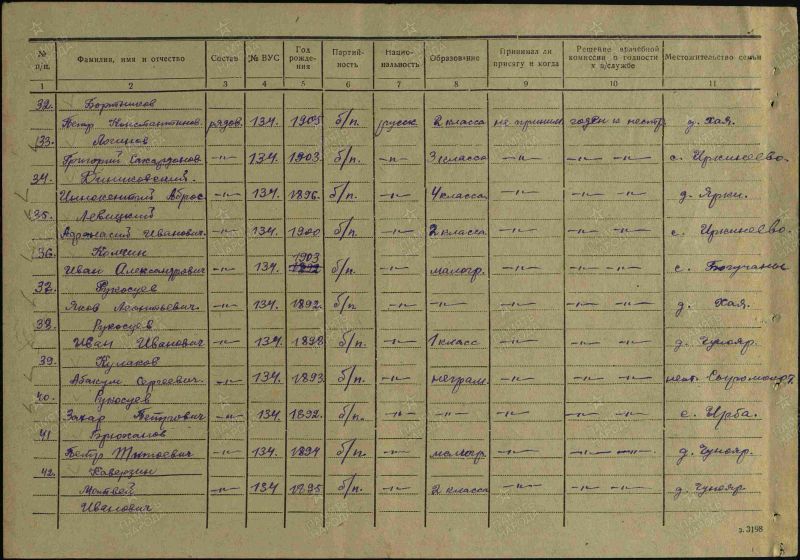 № п/п. Фамилия, имя и отчество Состав № ВУС Год рождения Партийность Национальность Образование Принимал ли присягу и когда Решение врачебной комиссии о годности к в/службе Местожительство семьи
1 2 3 4 5 6 7 8 9 10 11
32. Бортников
Петр Константинов. рядов. 134. 1905 б/п. русск 2 класса не приним. годен к нестр. д. Хая.
33. Логинов
Григорий -"- 134. 1903. б/п. -"- 3 класса -"- -"- -"- с. Иркинеево.
34.
Иннокентий Аброс. -"- 134. 1896. б/п. -"- 4 класса -"- -"- -"- д. Ярки.
35. Левицкий
Афанасий Иванович. -"- 134. 1900 б/п. -"- 2 класса. -"- -"- -"- с. Иркинеево.
36. Колпин 1903
Иван Александрович -"- 134. б/п. -"- малогр. -"- -"- -"- с. Богучаны
37. Рукосуев
Яков Леонтьевич. -"- 134. 1892. б/п. -"- -"- -"- -"- -"- д. Хая.
38. Рукосуев
Иван Иванович -"- 134. 1898 б/п. -"- 1 класс -"- -"- -"- д. Чунояр.
39. Кулаков
Абакум Сергеевич. -"- 134. 1893. б/п. -"- неграм. -"- -"- -"-
40. Рукосуев
Захар Петрович -"- 134. 1892. б/п. -"- -"- -"- -"- -"- с. Ирба.
41 Брюханов
Петр -"- 134. 1894 б/п. -"- малогр. -"- -"- -"- д. Чунояр.
42. Каверзин
Матвей -"- 134 1895 б/п. -"- 2 класса -"- -"- -"- д. Чунояр
Иванович
з. 3198